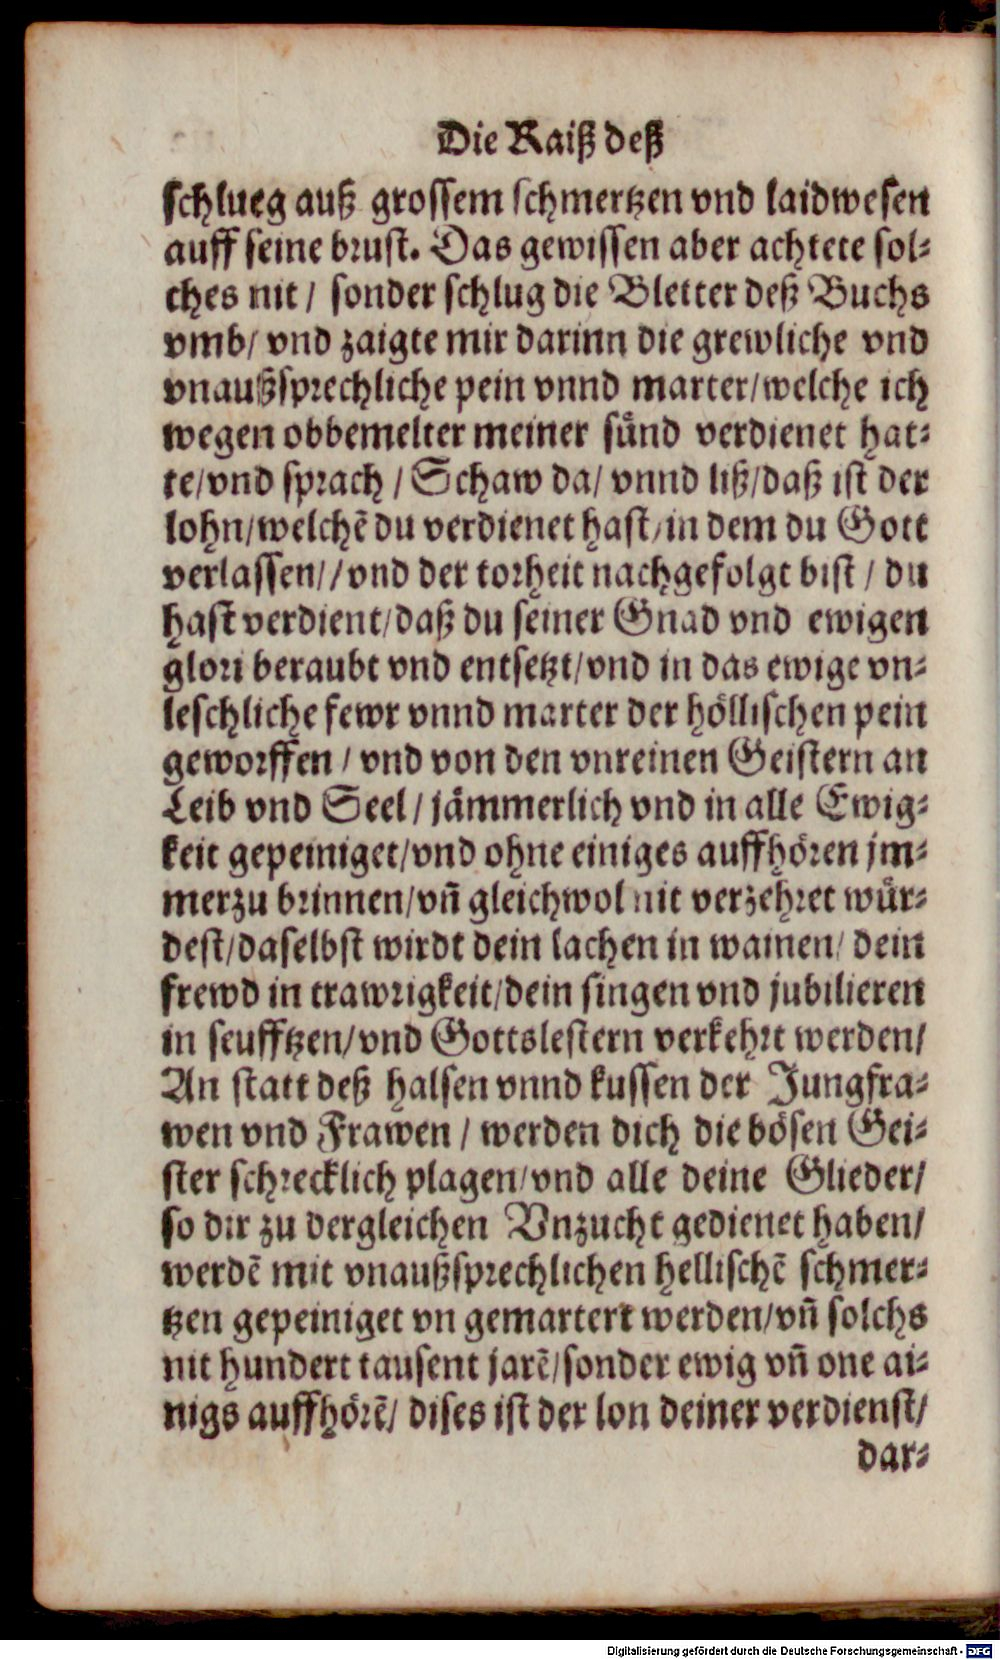 Die Raiß deß
schlueg auß grossem schmertzen vnd laidwesen
auff seine brust. Das gewissen aber achtete sol⸗
ches nit / sonder schlug die Bletter deß Buchs
vmb/ vnd zaigte mir darinn die grewliche vnd
vnaußsprechliche pein vnnd marter/welche ich
wegen obbemelter meiner sünd verdienet hat⸗
te/vnd sprach / Schaw da/ vnnd liß/daß ist der
lohn/welchẽ du verdienet hast/in dem du Gott
verlassen//vnd der torheit nachgefolgt bist / du
hast verdient/daß du seiner Gnad vnd ewigen
glori beraubt vnd entsetzt/vnd in das ewige vn⸗
leschliche fewr vnnd marter der höllischen pein
geworffen / vnd von den vnreinen Geistern an
Leib vnd Seel / jämmerlich vnd in alle Ewig⸗
keit gepeiniget/vnd ohne einiges auffhören jm⸗
merzu brinnen/vñ gleichwol nit verzehret wür⸗
dest/daselbst wirdt dein lachen in wainen/ dein
frewd in trawrigkeit/dein singen vnd jubilieren
in seufftzen/vnd Gottslestern verkehrt werden/
An statt deß halsen vnnd kussen der Jungfra⸗
wen vnd Frawen / werden dich die bösen Gei⸗
ster schrecklich plagen/vnd alle deine Glieder/
so dir zu dergleichen Vnzucht gedienet haben/
werdẽ mit vnaußsprechlichen hellischẽ schmer⸗
tzen gepeiniget vn gemartert werden/vñ solchs
nit hundert tausent jarẽ/sonder ewig vñ one ai⸗
nigs auffhörẽ/ dises ist der lon deiner verdienst/
dar⸗
Digitalisierung gefördert durch die Deutsche Forschungsgemeinschaft - DFG